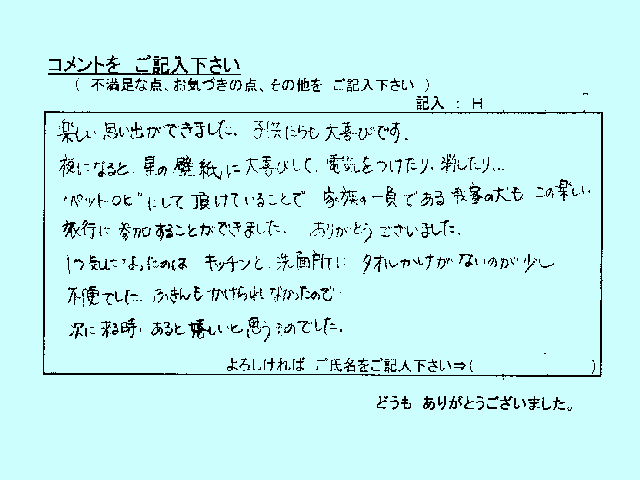 コメントを ご記入下さい
( 不満足な点、お気づきの点、その他を ご記入下さい )
記入 : H
楽しい思い出ができました。子供たちも大喜びです。
夜になると、星の壁紙に大喜びして、電気をつけたり、消したり...
"ペットOK"にして頂けていることで 家族の一員である我家の犬も この楽しい
旅行に参加することができました。 ありがとうございました。
1つ気になったのは キッチンと、洗面所に タオルかけがないのが少し
不便でした。ふきんもかけられなかったので
次に来る時、あると嬉しいと思うものでした。
よろしければ ご氏名をご記入下さい⇒( )
どうも ありがとうございました。